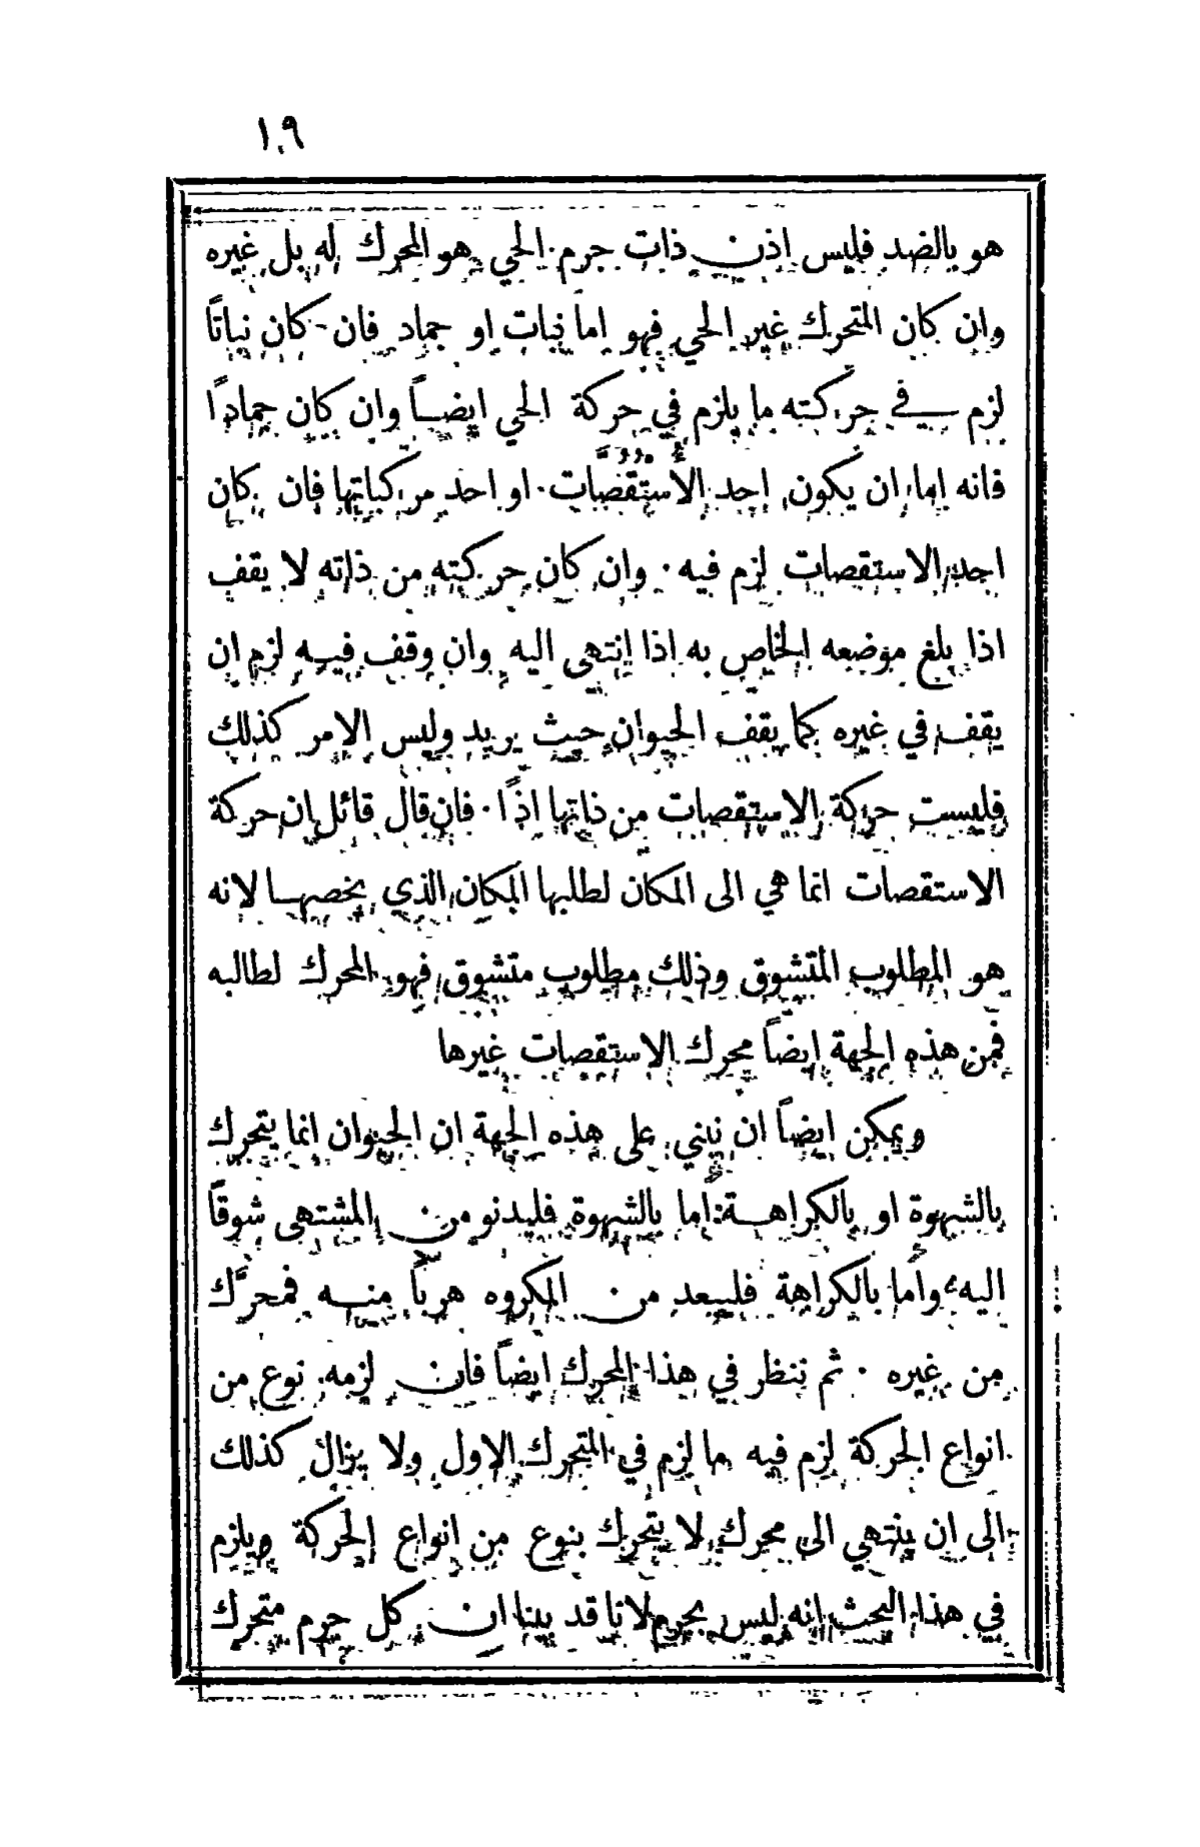 ١٩
هو بالضد فليس اذن ذات جرم الحي هو المحرك له بل غيره
وان كان المتحرك غير الحي فهو اما نبات او جماد فان كان نباتاً
لزم في حركته ما يلزم في حركة الحي ايضاً وان كان جماداً
فانه اما ان يكون احد الأُسْتُقُصَّات او احد مركباتها فان كان
احد الاستقصات لزم فيه ٠ وان كان حركته من ذاته لا يقف
اذا بلغ موضعه الخاص به اذا انتهى اليه وان وقف فيه لزم ان
يقف في غيره كما يقف الحيوان حيث يريد وليس الامر كذلك
فليست حركة الاستقصات من ذاتها اذًا ٠ فان قال قائل ان حركة
الاستقصات انما هي الى المكان لطلبها المكان الذي يخصها لانه
هو المطلوب المتشوق وذلك مطلوب متشوق فهو المحرك لطالبه
فمن هذه الجهة ايضاً محرك الاستقصات غيرها
ويمكن ايضاً ان نبني على هذه الجهة ان الحيوان انما يتحرك
بالشهوة او بالكراهة أما بالشهوة فليدنو من المشتهى شوقاً
اليه وأما بالكراهة فليبعد من المكروه هرباً منه فمحرَّك
من غيره ٠ ثم ننظر في هذا المحرك ايضاً فان لزمه نوع من
انواع الحركة لزم فيه ما لزم في المتحرك الاول ولا يزال كذلك
الى ان ينتهي الى محرك لا يتحرك بنوع من انواع الحركة ويلزم
في هذا البحث انه ليس بجرم لانا قد بينا ان كل جرم متحرك